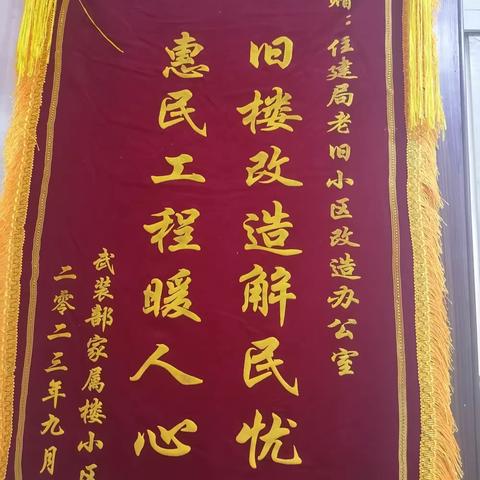 赠：住建局老旧小区改造办公室
旧楼改造解民忧
惠民工程暖人心
武装部家属楼小区
二零二三年九月